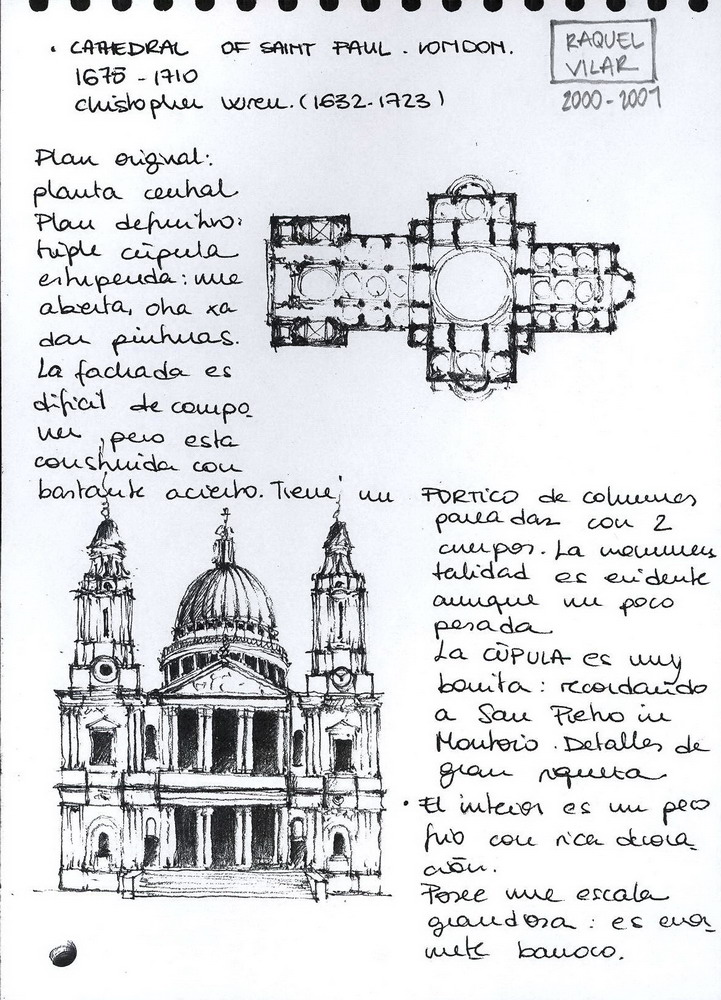 · CATHEDRAL OF SAINT PAUL. LONDON.
1675 - 1710
Christopher Wren. (1632-1723)
RAQUEL
VILAR
2000-2001
Plan original:
planta central
Plan definitivo:
triple cúpula
estupenda: una
abierta, otra xa
dar pinturas.
La fachada es
difícil de compo
ner, pero esta
construida con
bastante acierto. Tiene un PORTICO de columnas
pareadas con 2
cuerpos. La monumen
talidad es evidente
aunque un poco
pesada
La CÚPULA es muy
bonita: recordando
a San Pietro in
Montorio. Detalles de
gran riqueza
· El interior es un poco
frio con rica decora
ción.
Posee una escala
grandiosa: es
barroco.